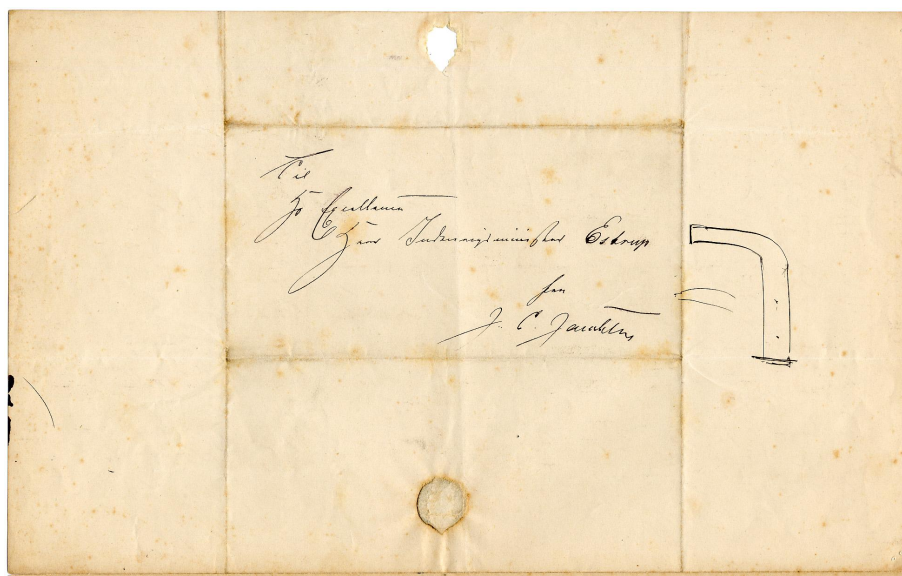 Til
Hs Excellence
Herr Indenrigsminister Estrup
fra
J. C. Jacobsen